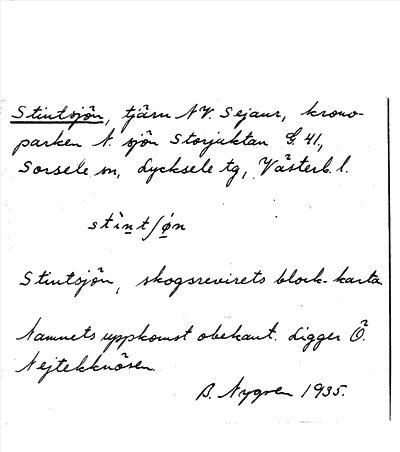 Stintsjön, tjärn NV. Sejaur, krono-
parken N. sjön Storjuktan G. 41.,
Sorsele sn, Lycksele tg, Västerb. l.
stìn̲tʃó̲n
Stintsjön, skogsrevirets block-karta
Namnets uppkomst obekant. Ligger Ö.
Nejtekknösen.
B. Nygren 1935.